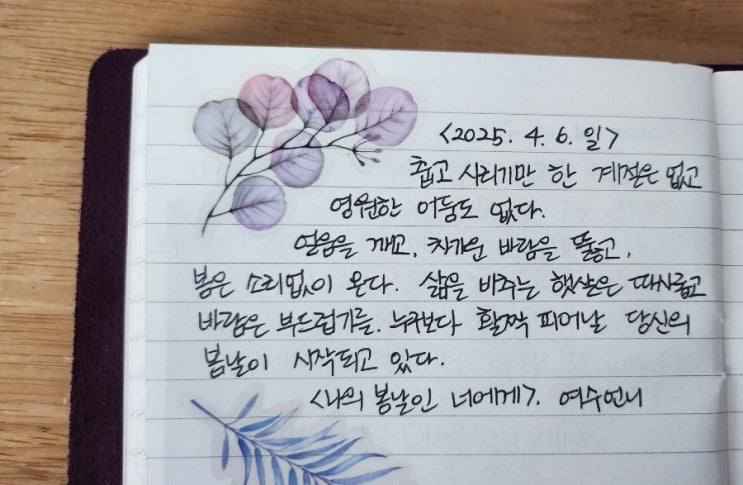 <2025. 4. 6. 일>
춥고 시리기만 한 계절은 없고
영원한 어둠도 없다.
얼음을 깨고, 차가운 바람을 뚫고,
봄은 소리없이 온다. 삶을 비추는 햇살은 따사롭고
바람은 부드럽기를. 누구보다 활짝 피어날 당신의
봄날이 시작되고 있다.
<나의 봄날인 너에게>. 여수언니